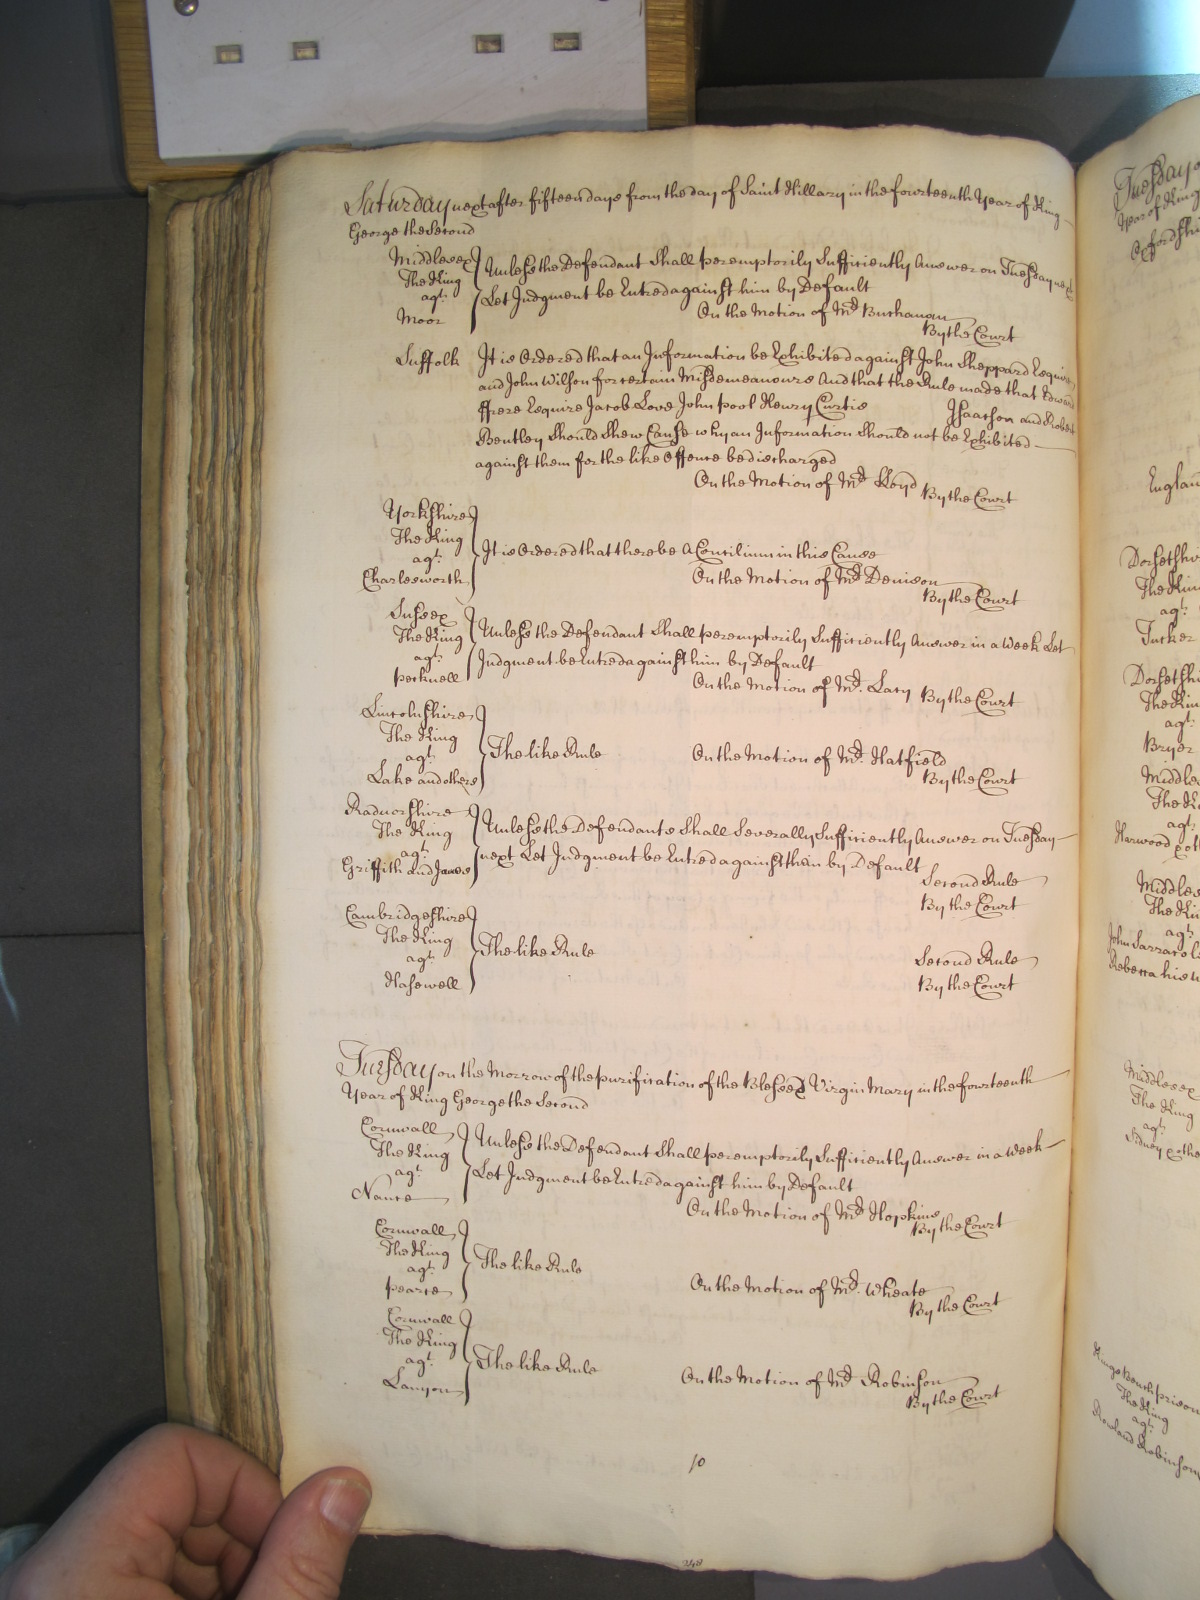 Saturday next after fifteen days from the day of Saint Hillary in the fourteenth Year of King
George the Second
Middlesex
The King
agt.
Moor
Unless the Defendant Shall peremptorily Sufficiently Answer on Tuesday next
Let Judgment be Entred against him by Default
On the Motion of Mr. Buchanan
By the Court
Suffolk
It is Ordered that an Information be Exhibited against John Sheppard Esquire
and John Wilson for certain Misdemeanours And that the Rule made that Edward
ffrere Esquire Jacob Love John pool Henry Curtis Isaacson and Robert
Bentley Should Shew Cause why an Information Should not be Exhibited
against them for the like Offence be discharged
On the Motion of Mr. Lloyd
By the Court
Yorkshire
The King
agt.
Charlesworth
It is Ordered that there be A Concilium in this Cause
On the Motion of Mr. Denison
By the Court
Sussex
The King
agt.
pecknell
Unless the Defendant Shall peremptorily Sufficiently Answer in a Week Let
Judgment be Entred against him by Default
On the Motion of Mr. Lacy
By the Court
Lincolnshire
The King
agt.
Lake and others
The like Rule
On the Motion of Mr. Hatfield
By the Court
Radnorshire
The King
agt.
Griffith and James
Unless the Defendants Shall Severally Sufficiently Answer on Tuesday
next Let Judgment be Entred against them by Default
Second Rule
By the Court
Cambridgeshire
The King
agt.
Hasewell
The like Rule
Second Rule
By the Court
Tuesday on the Morrow of the purification of the Blessed Virgin Mary in the fourteenth
Year of King George the Second
Cornwall
The King
agt.
Nance
Unless the Defendant Shall peremptorily Sufficiently Answer in a Week
Let Judgment be Entred against him by Default
On the Motion of Mr. Hopkins
By the Court
Cornwall
The King
agt.
pearce
The like Rule
On the Motion of Mr. Wheate
By the Court
Cornwall
The King
agt.
Lanyon
The like Rule
On the Motion of Mr. Robinson
By the Court
10
248
Tuesday
Year of King
England
The King
agt.
Tucker
The King
agt.
Bryer
The King
agt.
Harwood
The King
agt.
Rebecca his
Middlesex
The King
agt.
Kings Bench prison
The King
agt.
Rowland Robinson